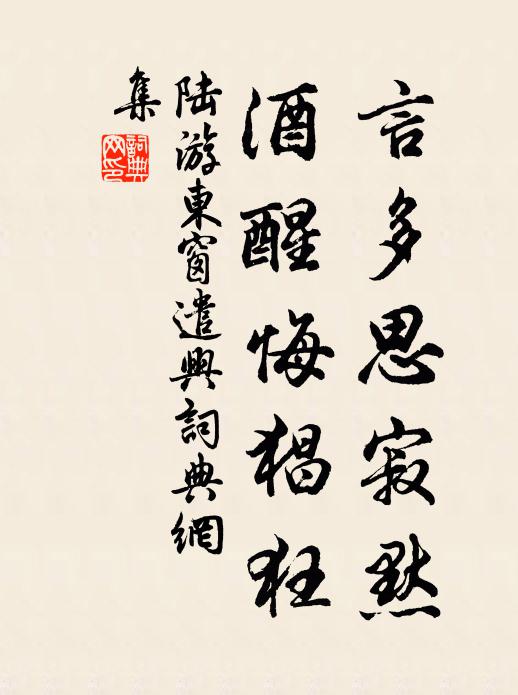 言多思寂默
酒醒悔猖狂
陸游東窗遣興詞典網
集
詞典網印